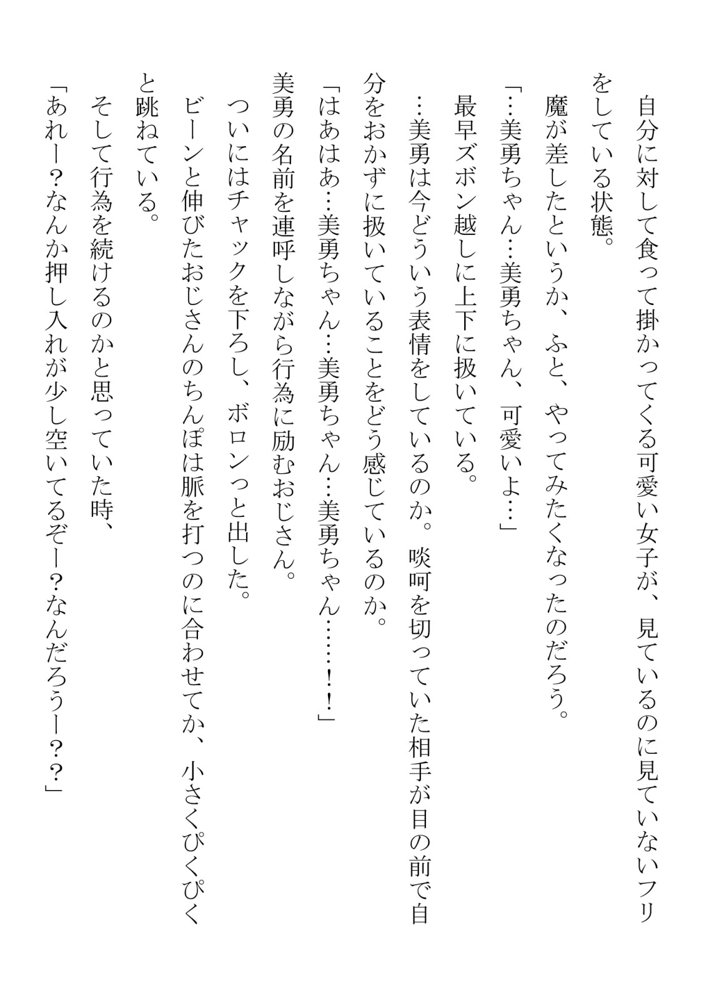 自分に対して食って掛かってくる可愛い女子が、見ているのに見ていないフリ
をしている状態。
　魔が差したというか、ふと、やってみたくなったのだろう。
「…美勇ちゃん…美勇ちゃん、可愛いよ…」
　最早ズボン越しに上下に扱いている。
　…美勇は今どういう表情をしているのか。啖呵を切っていた相手が目の前で自
分をおかずに扱いていることをどう感じているのか。
「はあはあ…美勇ちゃん…美勇ちゃん…美勇ちゃん……！！」
美勇の名前を連呼しながら行為に励むおじさん。
　ついにはチャックを下ろし、ボロンっと出した。
　ビーンと伸びたおじさんのちんぽは脈を打つのに合わせてか、小さくぴくぴく
と跳ねている。
　そして行為を続けるのかと思っていた時、
「あれー？なんか押し入れが少し空いてるぞー？なんだろうー？？」